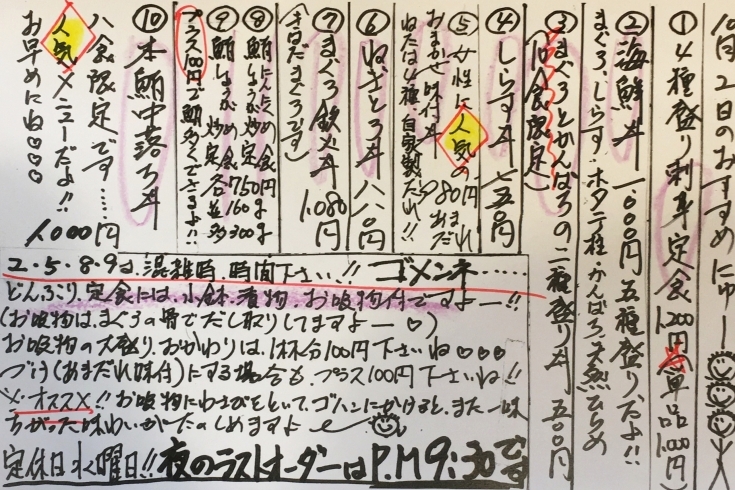 10月2日のおすすめにゅー
① 4種盛り刺身定食 1,200円(単品1,000円)
② 海鮮丼 1,000円 五種盛りだよ!!
まぐろ、しらす、ホタテ柱、かんぱち、天然ひらめ
③ まぐろとかんぱちの二種盛り丼 500円
(10食限定)
④ しらす丼 750円
⑤ 女性に人気の
おまかせ味付丼
ねたは4種、自家製だれ!!
⑥ ねぎとろ丼 880円
⑦ まぐろ鉄火丼 1,080円
(きはだまぐろです)
⑧ 鮪にんにく炒め定食 750円
⑨ 鮪しょうが炒め定食
各並160g 多300g
プラス100円で鮪多くできるよ!!
⑩ 本鮪中落ち丼 1000円
八食限定です……
人気メニューだよ!!
お早めにね♡♡♡
2・5・8・9は、混雑時、時間下さい!! ゴメンネ……
どんぶり、定食には、小鉢、煮物、お吸物付ですよー!!
(お吸物は、まぐろの骨でだし取りしてますよー♡)
お吸物の大盛り、おかわりは、1杯分100円下さいね♡♡♡
づけ(あまだれ味付)にする場合も、プラス100円下さいね!!
※オススメ!!お吸物にわさびをといて、ゴハンにかけると、また一味
ちがった味わいがたのしめますよ
定休日水曜日!!夜のラストオーダーはP.M9:30です